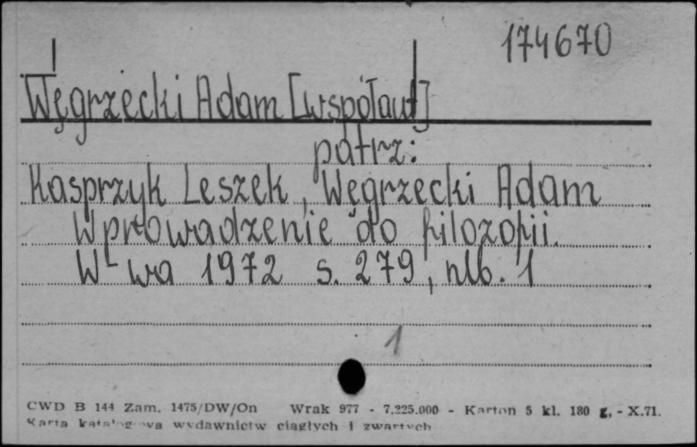 174670
Węgrzecki Adam [współaut]
patrz:
Kasprzyk Leszek, Węgrzecki Adam
Wprowadzenie do filozofii.
W-wa 1972 s. 279, nlb. 1
1
CWD B 144 Zam. 1475/DW/On Wrak 977 - 7.225.000 - Karton 5 kl. 180 g, - X.71.
Karta katalogowa wydawnictw ciągłych i zwartych